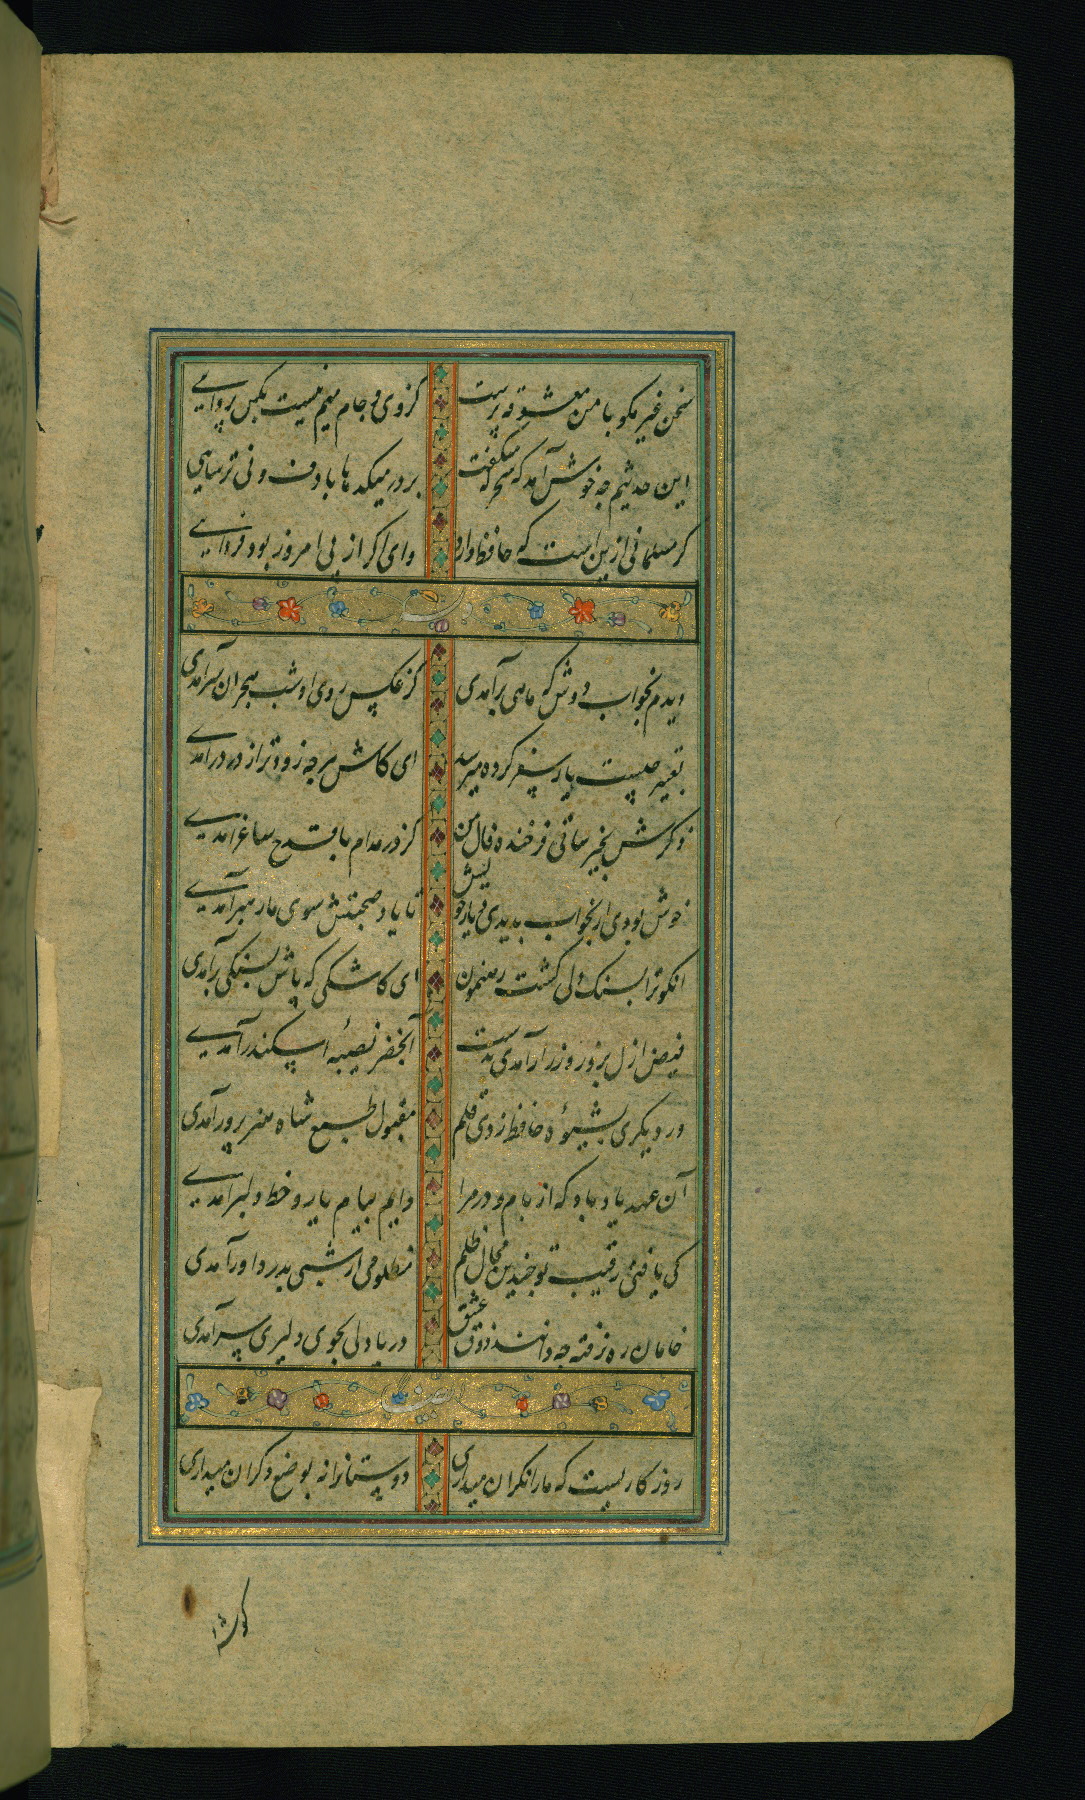 سخن غیر مگو با من معشوقه پرست کز وی و جام میم نیست بکس پروایی
این حدیثم چه خوش آمد که سحرگه میگفت بر در میکده با دف و نی ترسایی
گر مسلمانی ازین است که حافظ دارد وای اگر از پی امروز بود فردایی
دیدم بخواب دوش که ماهی برآمدی کز عکس روی او شب هجران سرآمدی
تعبیر چیست یار سفر کرده میرسد ای کاش هرچه زودتر از در درآمدی
ذکرش بخیر ساقی فرخنده فال من کز در مدام با قدح و ساغر آمدی
خوش بودی ار بخواب بدیدی دیار خویش تا یاد صحبتش سوی ما رهبر آمدی
آنکو ترا بسنگ دلی گشت رهنمون ای کاشکی که پاش بسنگی برآمدی
فیض ازل بزور و زر ار آمدی بدست آبخضر نصیبهٔ اسکندر آمدی
ور دیگری بشیوهٔ حافظ زدی قلم مقبول طبع شاه هنرپرور آمدی
آن عهد یاد باد که از بام و در مرا دایم پیام یار و خط دلبر آمدی
کی یافتی رقیب تو چندین مجال ظلم مظلومی ار شبی بدر داور آمدی
خامان ره نرفته چه دانند ذوق عشق دریا دلی بجوی دلیری سرآمدی
ایضا
روزگاریست که ما را نگران میداری دوستانرا نه بوضع دگران میداری